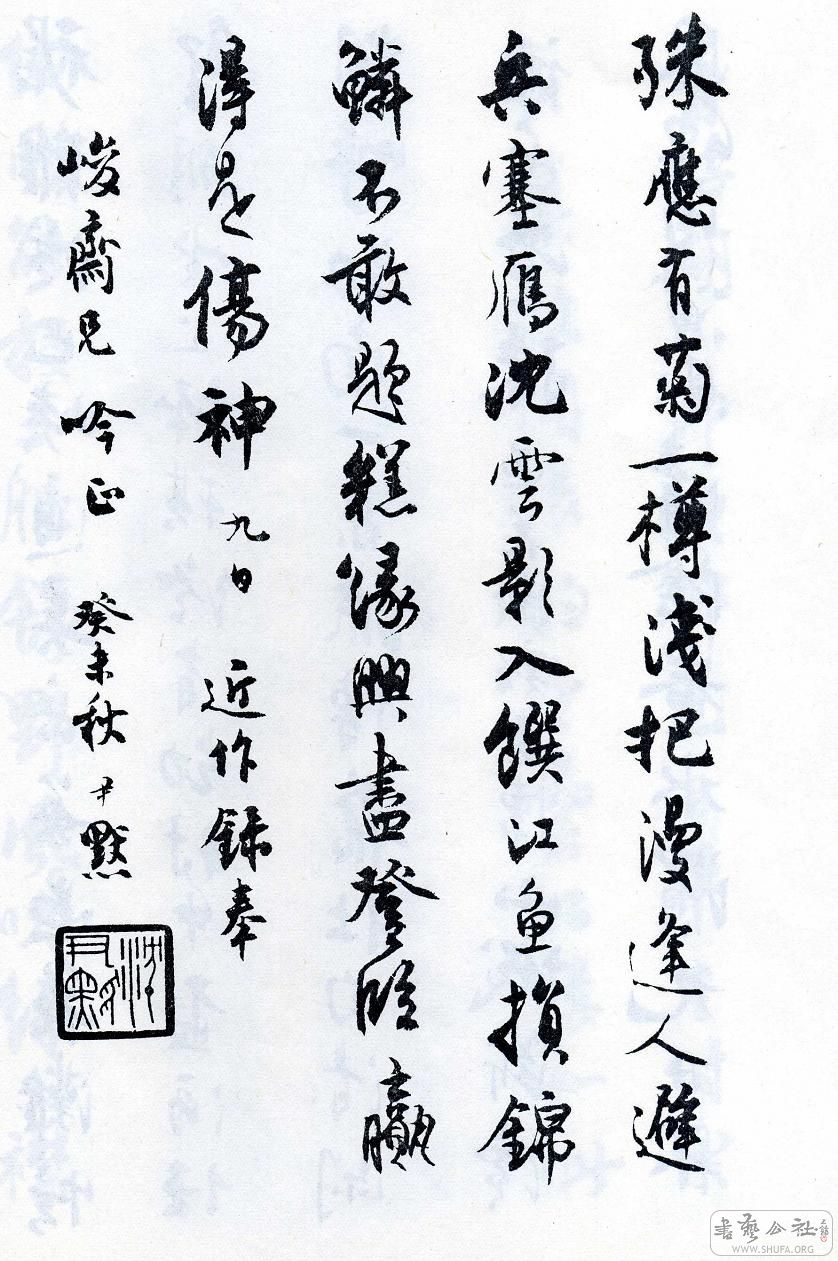 殊應有菊一樽淺把漫逢人避
兵塞雁沈雲影入饌江魚損錦
鱗不敢題糕緣興盡登臨贏
得是傷神 九日 近作錄奉
峻齋兄 吟正 癸未秋 尹默
沈尹默
書藝公社
WWW.SHUFA.ORG